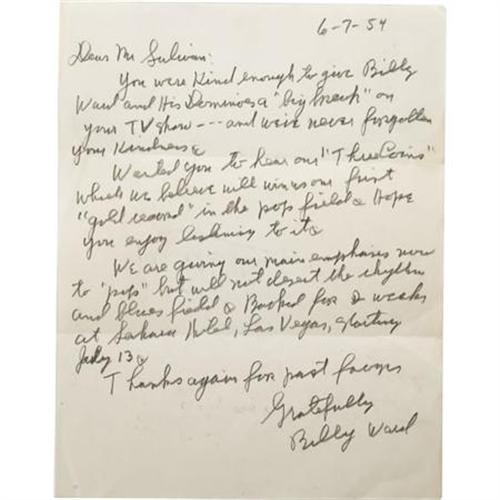 6-7-54
Dear Mr Sulivan:
You were kind enough to give Billy
Ward and His Dominoes a "big break" on
your TV show --- and we've never forgotten
your kindness.
Wanted you to hear our "Three Coins"
which we believe will win us our first
"gold record" in the pops field. Hope
you enjoy listening to it.
We are giving our main emphasis now
to "pops" but will not desert the rhythm
and blues field. Booked for 2 weeks
at Sahara Hotel, Las Vegas, starting
July 13.
Thanks again for past favors
Gratefully
Billy Ward